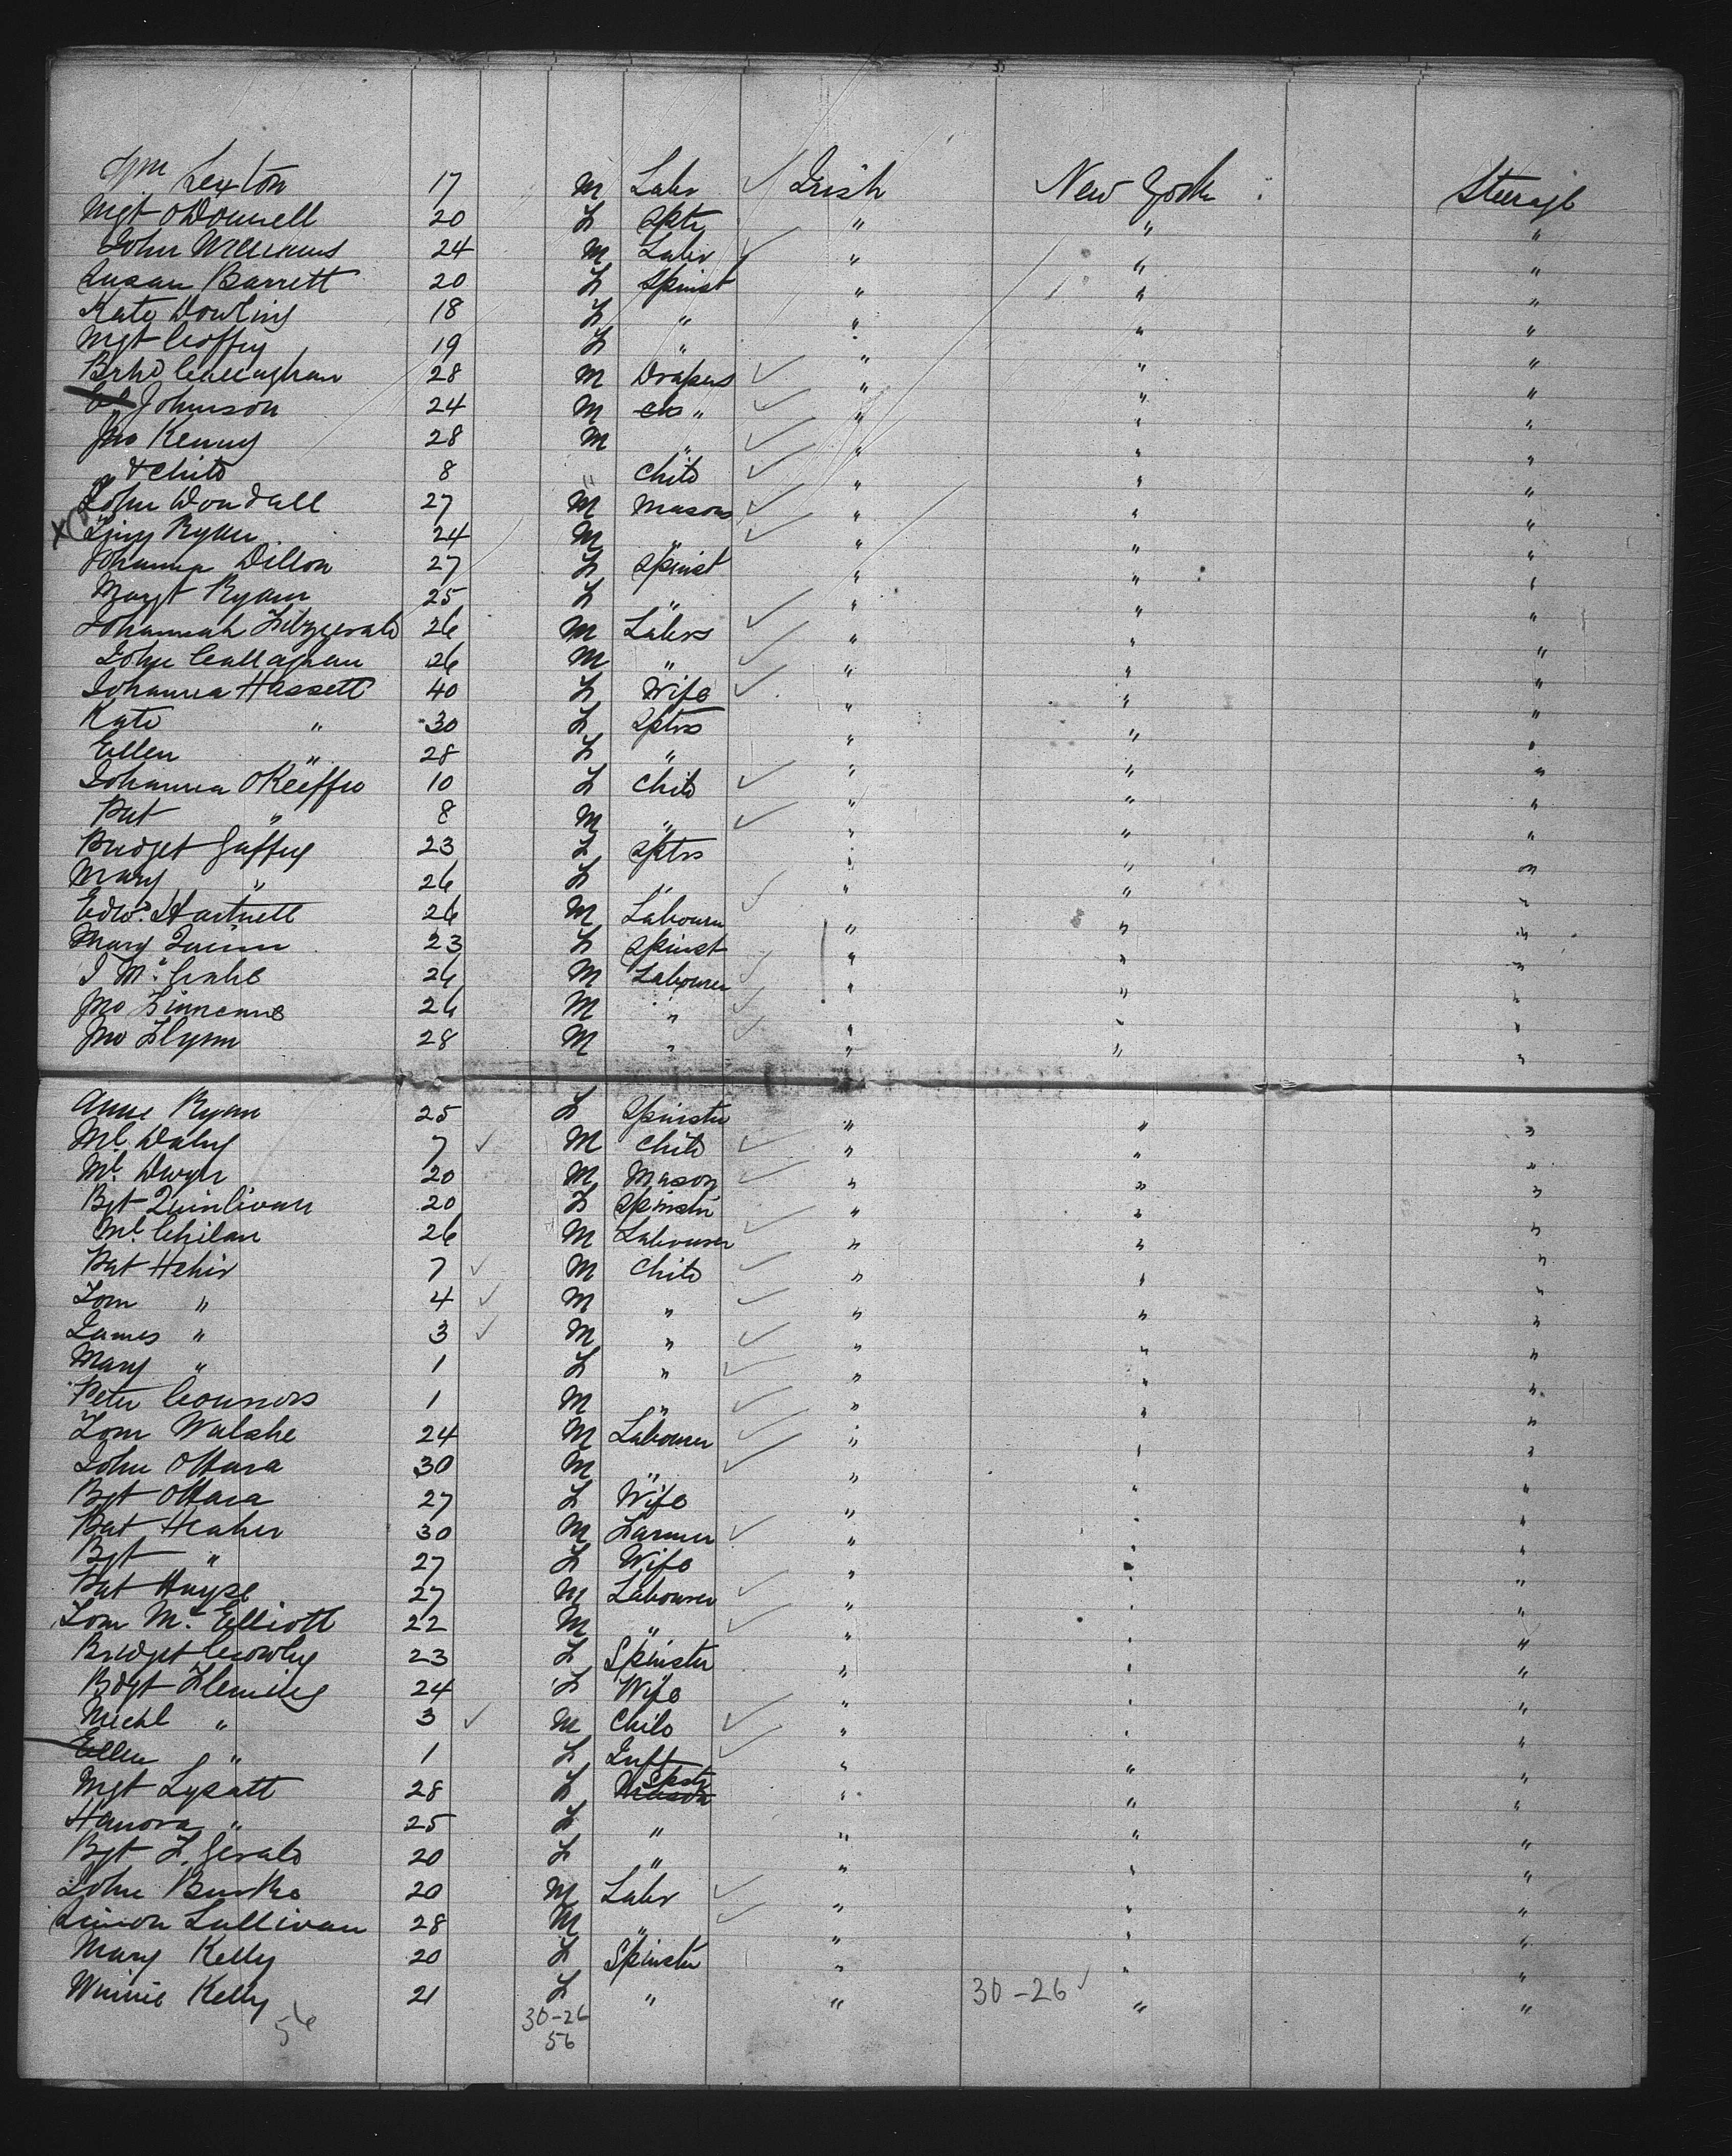 Wm Sexton 17 M Labr ✓ Irish New York Steerage
Mgt ODonnell 20 F Sptr " " "
John Williams 24 M Labr ✓ " " "
Susan Barrett 20 F Spinst " " "
Kate Dowling 18 F " " " "
Mgt Coffey 19 F " " " "
Callaghan 28 M Drapers ✓ " " "
Johnson 24 M " ✓ " " "
Jno Kenny 28 M " ✓ " " "
& Child 8 " Child ✓ " " "
John Dondall 27 M Masons ✓ " " "
Ryan 24 M " ✓ " " "
Johanna Dillon 27 F Spinst " " "
Margt Ryan 25 F " " " "
Johannah Fitzgerald 26 M Labrs ✓ " " "
John Callaghan 26 M " ✓ " " "
Johanna Hassett 40 F Wife ✓ " " "
Kate " 30 F Sptrs " " "
Ellen " 28 F " " " "
Johanna OKeiffe 10 F Child ✓ " " "
Pat " 8 M " ✓ " " "
Bridget Gaffey 23 F Sptrs " " "
Mary " 26 F " " " "
Edwd Hartnett 26 M Labourer ✓ " " "
Mary Quinn 23 F Spinst " " "
26 M Labourer ✓ " " "
Jno 26 M " ✓ " " "
Jno Flynn 28 M " ✓ " " "
Anne Ryan 25 F Spinster " " "
Ml Daly 7 ✓ M Child ✓ " " "
Ml Dwyer 20 M Mason ✓ " " "
Bgt Quinlivan 20 F Spinster " " "
Ml 26 M Labourer ✓ " " "
Pat Hehir 7 ✓ M Child ✓ " " "
Tom " 4 ✓ M " ✓ " " "
James " 3 ✓ M " ✓ " " "
Mary " 1 F " ✓ " " "
Peter Connors 1 M " ✓ " " "
Tom Walshe 24 M Labourer ✓ " " "
John OHara 30 M " ✓ " " "
Bgt OHara 27 F Wife " " "
Pat Heaher 30 M Farmer ✓ " " "
Bgt " 27 F Wife " " "
Pat 27 M Labourer ✓ " " "
Tom Mc Elliott 22 M " ✓ " " "
Bridget Crowley 23 F Spinster " " "
Bdgt Fleming 24 F Wife " " "
Michl " 3 ✓ M Child ✓ " " "
Ellen " 1 F Inft ✓ " " "
Mgt Lysatt 28 F Mason Spstr " " "
Hanora " 25 F " " " "
Bgt F. Gerald 20 F " " " "
John Burke 20 M Labr ✓ " " "
Simon Sullivan 28 M " ✓ " " "
Mary Kelly 20 F Spinster " " "
Winnie Kelly 21 F " " 30-26 ✓ " "
56 30-26
56